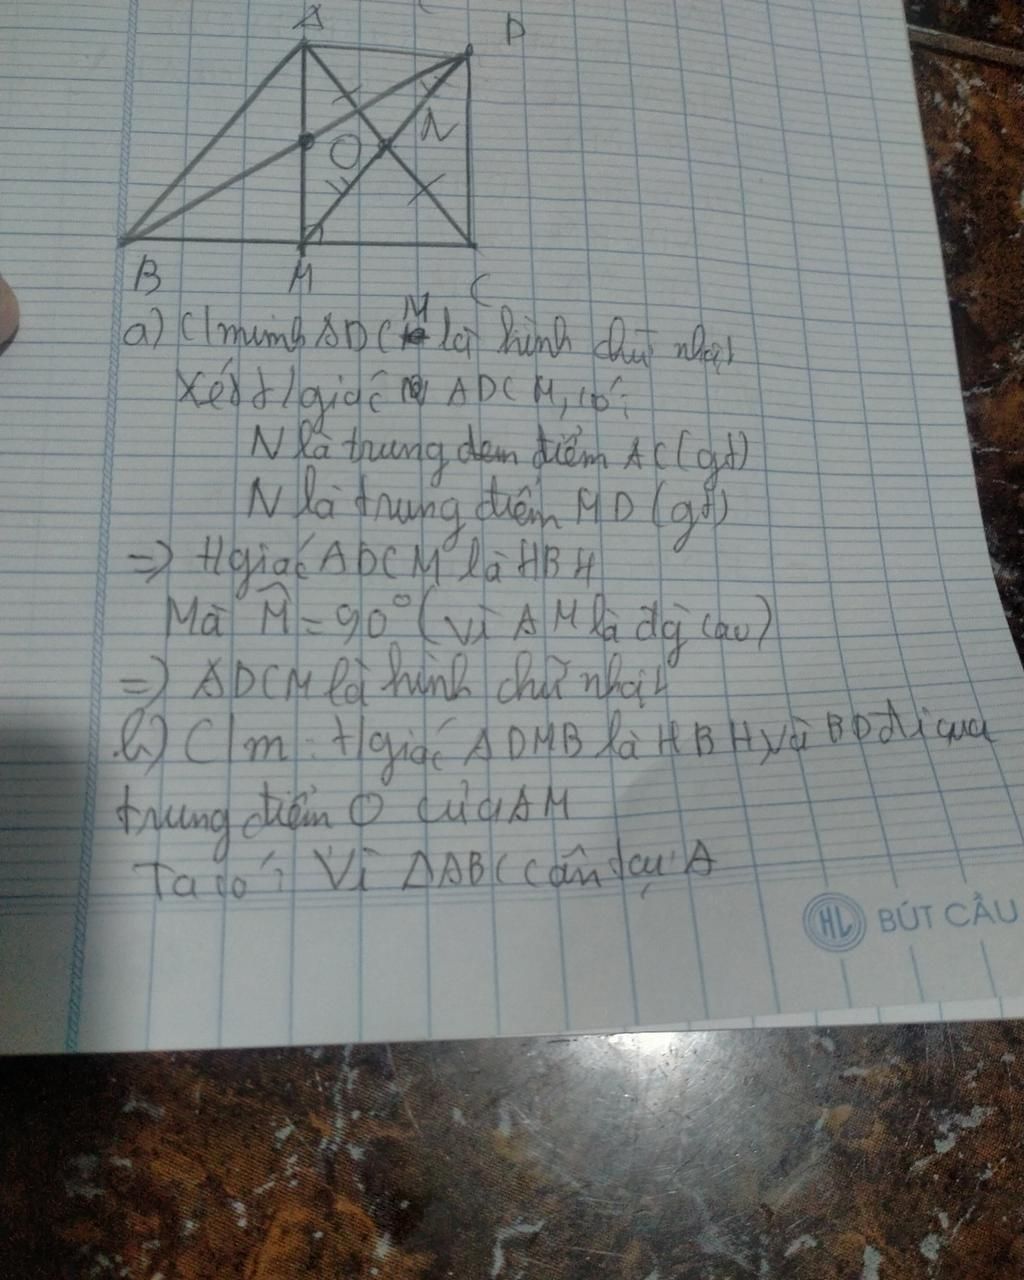 A
D
O
N
B
M
C
a) C/minh ADCM là hình chữ nhật
Xét t/giác ADCM, có:
N là trung điểm AC (gt)
N là trung điểm MD (gt)
=) t/giác ADCM là HBH
Mà M̂ = 90° (vì AM là đg cao)
=) ADCM là hình chữ nhật
b) C/m: t/giác ADMB là HBH, và BD đi qua
trung điểm O của AM
Ta có: Vì ΔABC cân tại A
HL BÚT CẦU